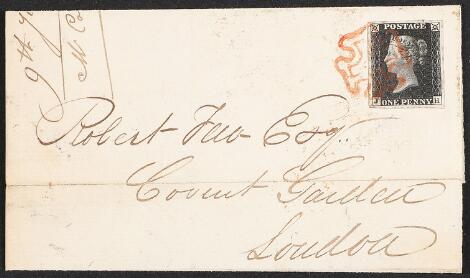 9th
POSTAGE
ONE PENNY
Robert Faw Esq.
Covent Garden
London